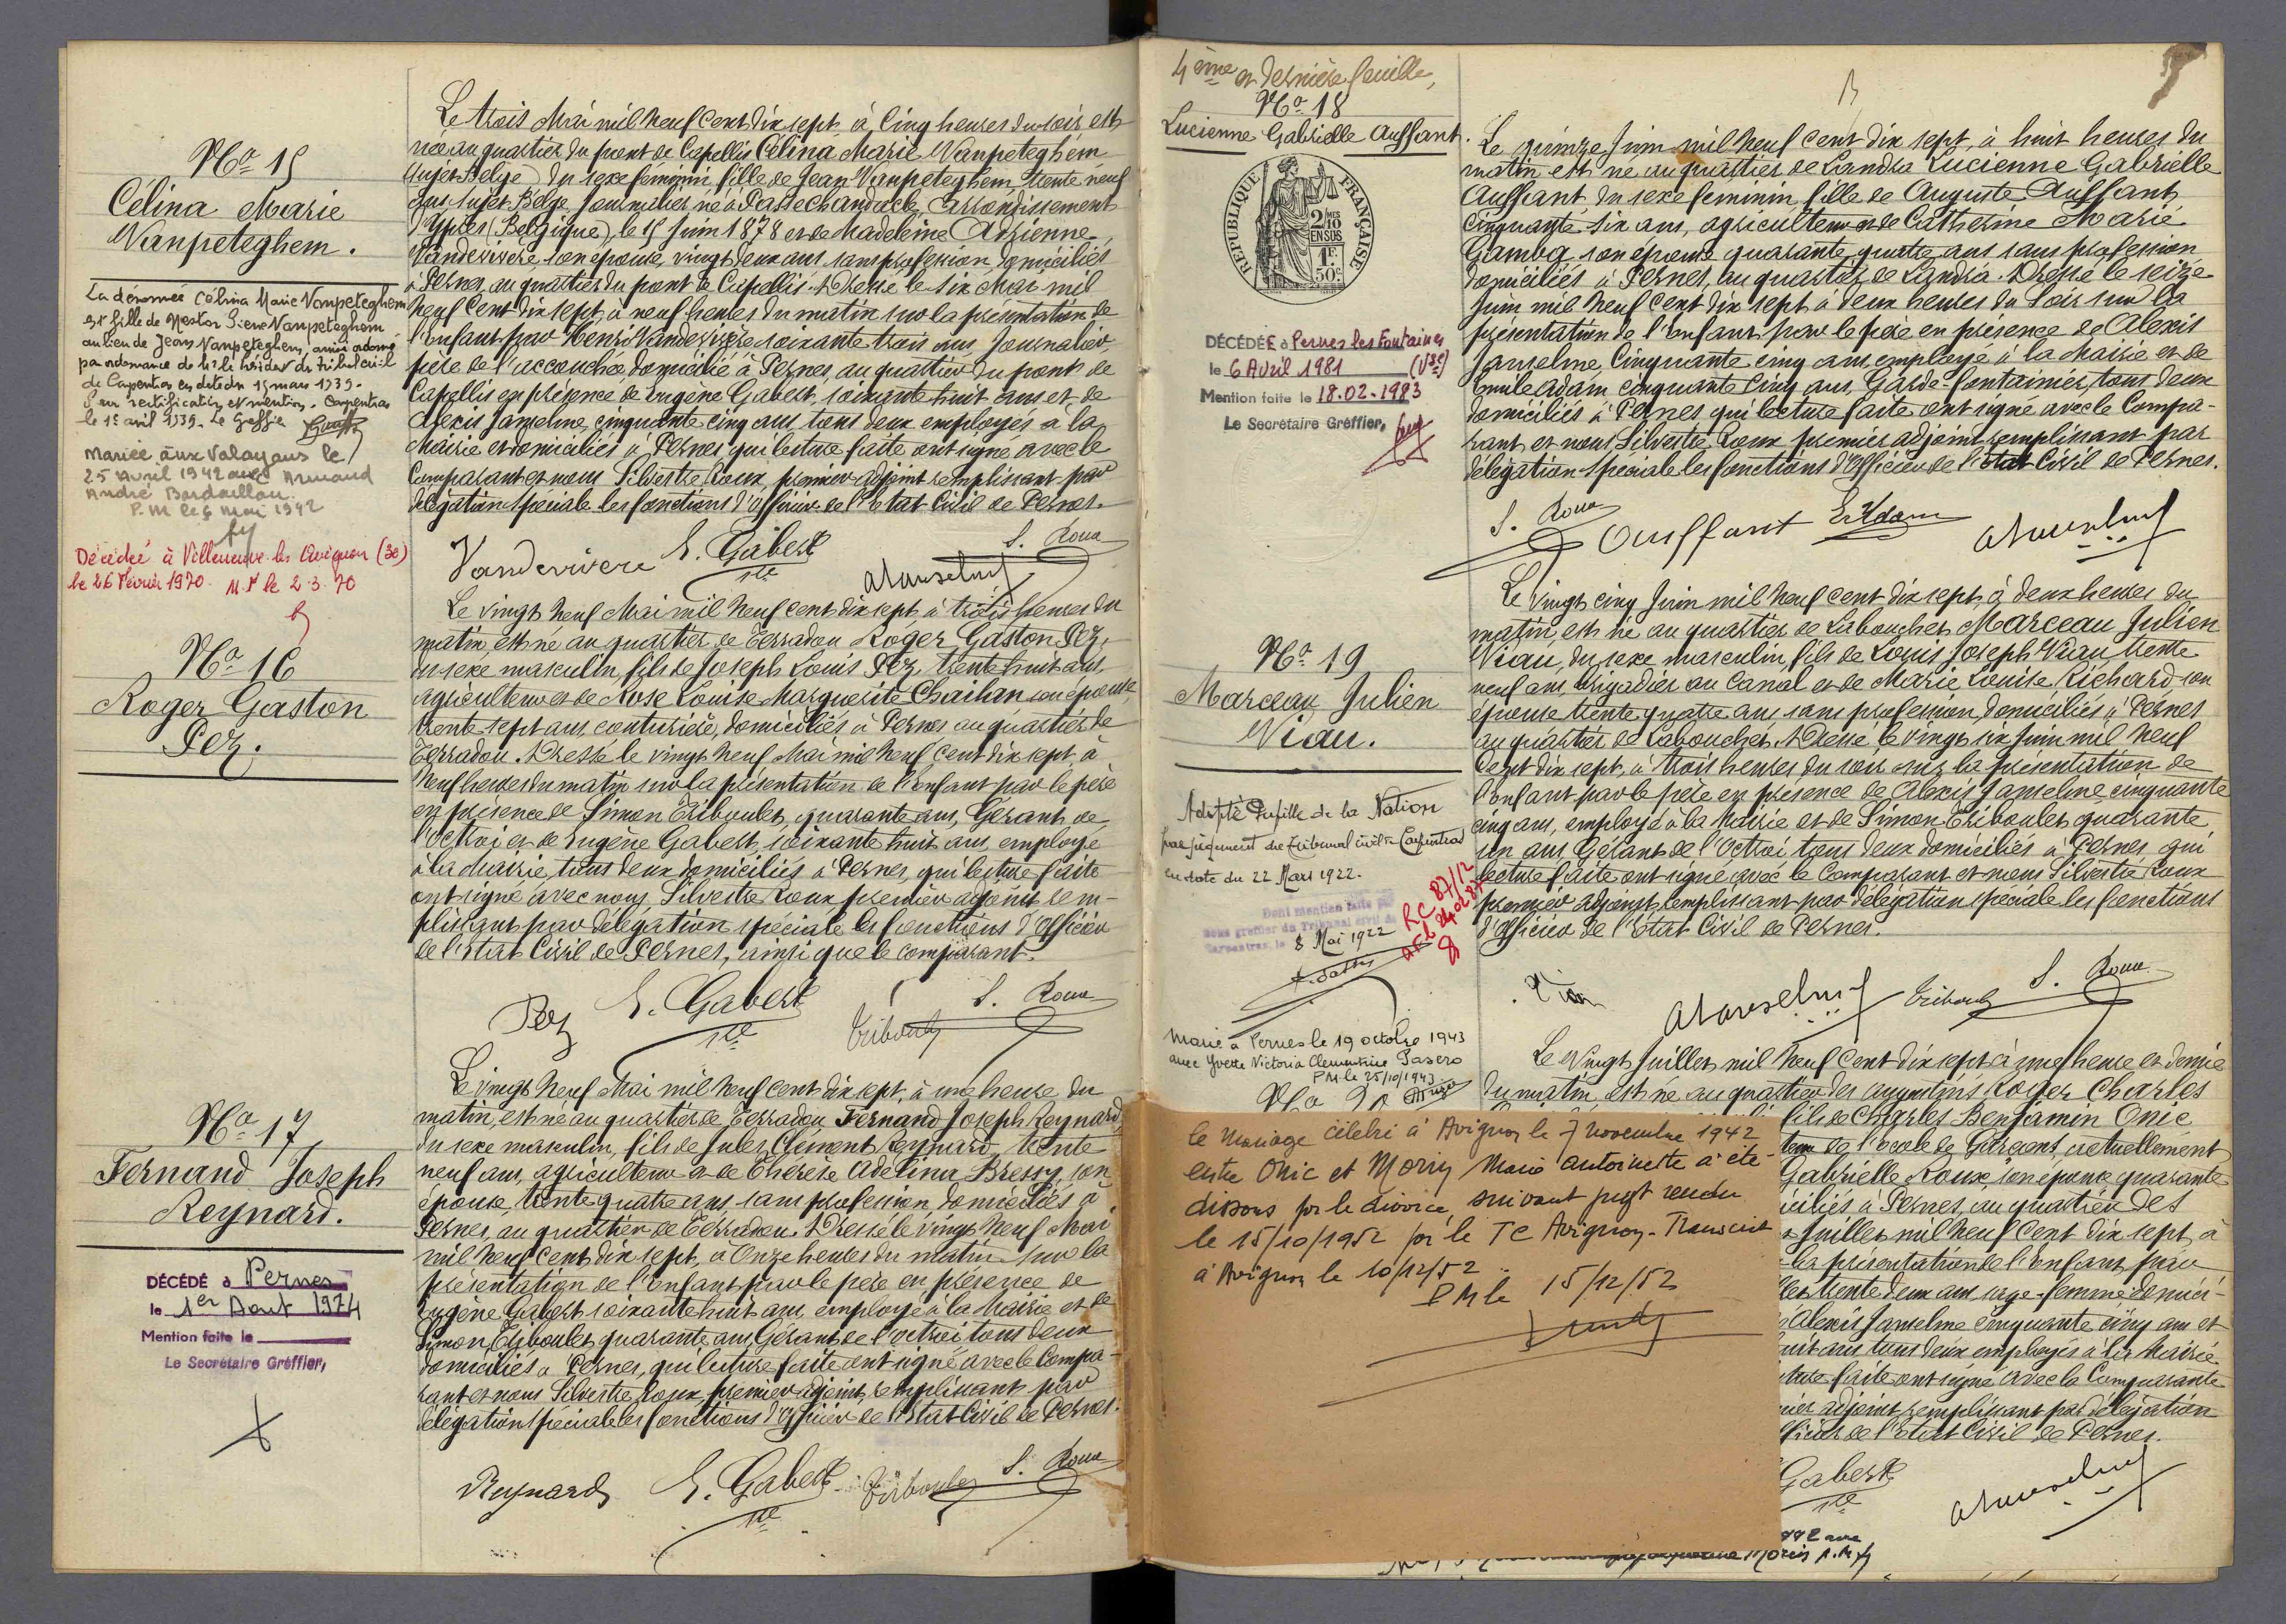 No 15
Célina Marie
Vanpeteghem.
La dénomée Célina Marie Vanpeteghem
est fille de Nestor Vanpeteghem
au lieu de Jean Vanpeteghem, ainsi ordonné
par ordonnance de Mr le Président du tribunal civil
de Carpentras en date du 15 mars 1939.
Pour rectification et mention. Carpentras
le 1er avril 1939. Le Greffier
Mariée aux Valayans le
25 avril 1942 avec Armand
André Bardaillou
P.M le 6 mai 1942
Décédée à Villeneuve les Avignon (30)
le 26 Février 1970. M.P le 2.3.70
Le trois Mai mil neuf cent dix sept, à cinq heures du soir est
née au quartier du pont de Capellis Célina Marie Vanpeteghem
sujet Belge du sexe feminin fille de Jean Vanpeteghem trente neuf
ans sujet Belge journalier né à arrondissement
d'Ypres (Belgique), le 15 Juin 1878 et de Madeleine Adrienne
Vandevivère son épouse, vingt deux ans, sans profession domiciliés
à Pernes, au quartier du pont de Capellis. Dressé le six Mai mil
neuf cent dix sept, à neuf heures du matin sur la présentation de
l'enfant par Henri Vandevivère soixante trois ans journalier,
père de l'accouchée, domicilié à Pernes, au quartier du pont de
Capellis en présence de Eugène Gabert, soixante huit ans et de
Alexis Janselme, cinquante cinq ans tous deux employés à la
Mairie et domiciliés à Pernes, qui lecture faite ont signé avec le
Comparant et nous Silvestre Roux, premier adjoint remplissant par
délégation spéciale les fonctions d'officier de l'Etat Civil de Pernes.
Vandevivere E. Gabert S. Roux
AJanselme
No 16
Roger Gaston
Pez.
Le vingt neuf Mai mil neuf cent dix sept, à trois heures du
matin, est né au quartier de Terradou Roger Gaston Pez,
du sexe masculin, fils de Joseph Louis Pez, trente huit ans,
agriculteur et de Rose Louise Marguerite Chailan son épouse,
trente sept ans, couturière, domiciliés à Pernes au quartier de
Terradou. Dressé le vingt neuf Mai mil neuf cent dix sept, à
neuf heures du matin sur la présentation de l'enfant par le père
en présence de Simon Triboulet, quarante ans, Gérant de
l'octroi et de Eugène Gabert, soixante huit ans, employé
à la mairie, tous deux domiciliés à Pernes, qui lecture faite
ont signé avec nous, Silvestre Roux premier adjoint rem-
plissant par délégation spéciale les fonctions d'officier
de l'Etat Civil de Pernes, ainsi que le comparant.
Pez E. Gabert Triboulet S. Roux
No 17
Fernand Joseph
Reynard.
DÉCÉDÉ à Pernes
le 1er Aout 1974
Mention faite le
Le Secrétaire Gréffier,
Le vingt neuf Mai mil neuf cent dix sept, à une heure du
matin, est né au quartier de Terradou Fernand Joseph Reynard
du sexe masculin, fils de Jules Clément Reynard, trente
neuf ans, agriculteur et de Thérèse Adelina Bressy, son
épouse, trente quatre ans, sans profession, domiciliés à
Pernes, au quartier de Terradou. Dressé le vingt neuf Mai
mil neuf cent dix sept, à onze heures du matin sur la
présentation de l'enfant par le père en présence de
Eugène Gabert soixante huit ans employé à la Mairie et de
Simon Triboulet quarante ans Gérant de l'octroi tous deux
domiciliés à Pernes, qui lecture faite ont signé avec le Compa-
rant et nous Silvestre Roux, premier adjoint, remplissant par
délégation spéciale les fonctions d'officier de l'Etat Civil de Pernes.
Reynard E. Gabert Triboulet S. Roux
4ème et dernière feuille,
No 18
Lucienne Gabrielle Auffant.
RÉPUBLIQUE FRANÇAISE
2/10
EN SUS
1F
50c
DÉCÉDÉE à Pernes les Fontaines
le 6 Avril 1981 (Vse)
Mention faite le 18.02.1983
Le Secrétaire Gréffier,
Le quinze Juin mil neuf cent dix sept, à huit heures du
matin est né au quartier de Landra Lucienne Gabrielle
Auffant du sexe feminin, fille de Auguste Auffant,
cinquante six ans, agriculteur et de Catherine Marie
Gamba son épouse quarante quatre ans sans profession
domiciliés à Pernes, au quartier de Landra. Dressé le seize
Juin mil neuf cent dix sept à deux heures du soir sur la
présentation de l'enfant par le père en présence de Alexis
Janselme, cinquante cinq ans, employé à la Mairie et de
Emile Adam cinquante cinq ans, Garde-fontainier, tous deux
domiciliés à Pernes qui lecture faite ont signé avec le Compa-
rant et nous Silvestre Roux premier adjoint remplissant par
délégation spéciale les fonctions d'Officier de l'Etat Civil de Pernes.
S. Roux Auffant E. Adam AJanselme
No 19
Marceau Julien
Viau.
Adopté Pupille de la Nation
par jugement du Tribunal civil de Carpentras
en date du 22 Mars 1922.
Dont mention faite par
nous greffier du Tribunal civil de
Carpentras, le 8 Mai 1922
RC 87/12
Marié à Pernes le 19 octobre 1943
avec Yvette Victoria Clementine Pasero
P.M. le 25/10/1943
Le vingt cinq Juin mil neuf cent dix sept, à deux heures du
matin, est né au quartier de Labouchet Marceau Julien
Viau, du sexe masculin, fils de Louis Joseph Viau, trente
neuf ans, brigadier au canal et de Marie Louise Richard son
épouse trente quatre ans, sans profession, domiciliés à Pernes
au quartier de Labouchet. Dressé le vingt six Juin mil neuf
cent dix sept, à trois heures du soir sur la présentation de
l'enfant par le père en présence de Alexis Janselme, cinquante
cinq ans, employé à la Mairie et de Simon Triboulet, quarante
un ans, Gérant de l'Octroi, tous deux domiciliés à Pernes qui
lecture faite ont signé avec le Comparant et nous Silvestre Roux
premier adjoint, remplissant par délégation spéciale les fonctions
d'Officier de l'Etat Civil de Pernes.
Viau AJanselme Triboulet S. Roux
No 20
Le vingt Juillet mil neuf cent dix sept à une heure et demie
du matin, est né au quartier des augustins Roger Charles
fils de Charles Benjamin Onic
de l'école de Garçons, actuellement
Gabrielle Roux son épouse quarante
à Pernes, au quartier des
Juillet mil neuf cent dix sept, à
la présentation de l'enfant par
trente deux ans sage-femme domici-
Alexis Janselme cinquante cinq ans et
ans tous deux employés à la Mairie
faite ont signé avec la Comparante
adjoint remplissant par délégation
de l'Etat Civil de Pernes.
Gabert AJanselme
le Mariage célébré à Avignon le 7 novembre 1942
entre Onic et Morin Marie Antoinette a été
dissous par le divorce, suivant jugt rendu
le 15/10/1952 par le TC Avignon. Transcrit
à Avignon le 10/12/52.
P M le 15/12/52